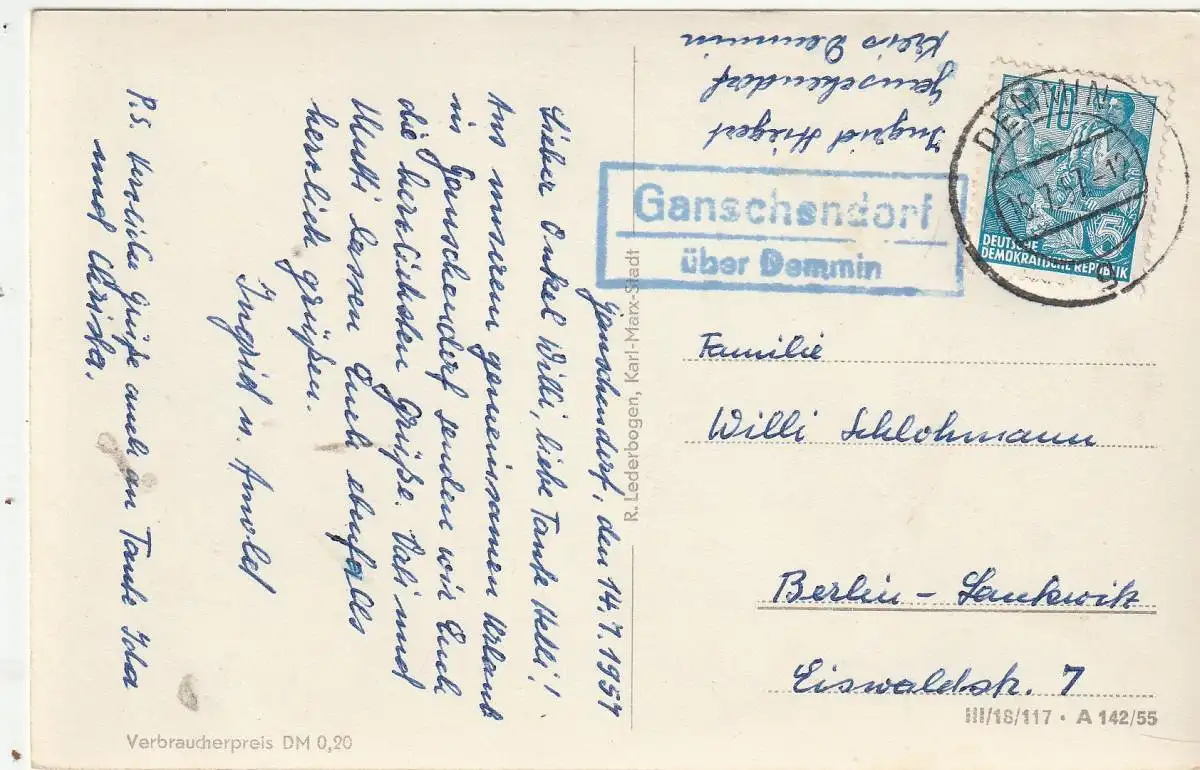 Ganschendorf, den 14.7.1957
Lieber Onkel Willi, liebe Tante Helli!
Aus unserem gemeinsamen Urlaub
in Ganschendorf senden wir Euch
die herzlichsten Grüße. Vati und
Mutti lassen Euch ebenfalls
herzlich grüßen.
Ingrid u. Arnold
P.S. Herzliche Grüße auch an Tante
und Christa.
Ingrid
Ganschendorf
Kreis Demmin
Ganschendorf
über Demmin
DEMMIN
15.7.57.-12
10
5
DEUTSCHE
DEMOKRATISCHE REPUBLIK
Familie
Willi Schlohmann
Berlin-Lankwik
Eiswaldstr. 7
R. Lederbogen, Karl-Marx-Stadt
III/18/117 · A 142/55
Verbraucherpreis DM 0,20